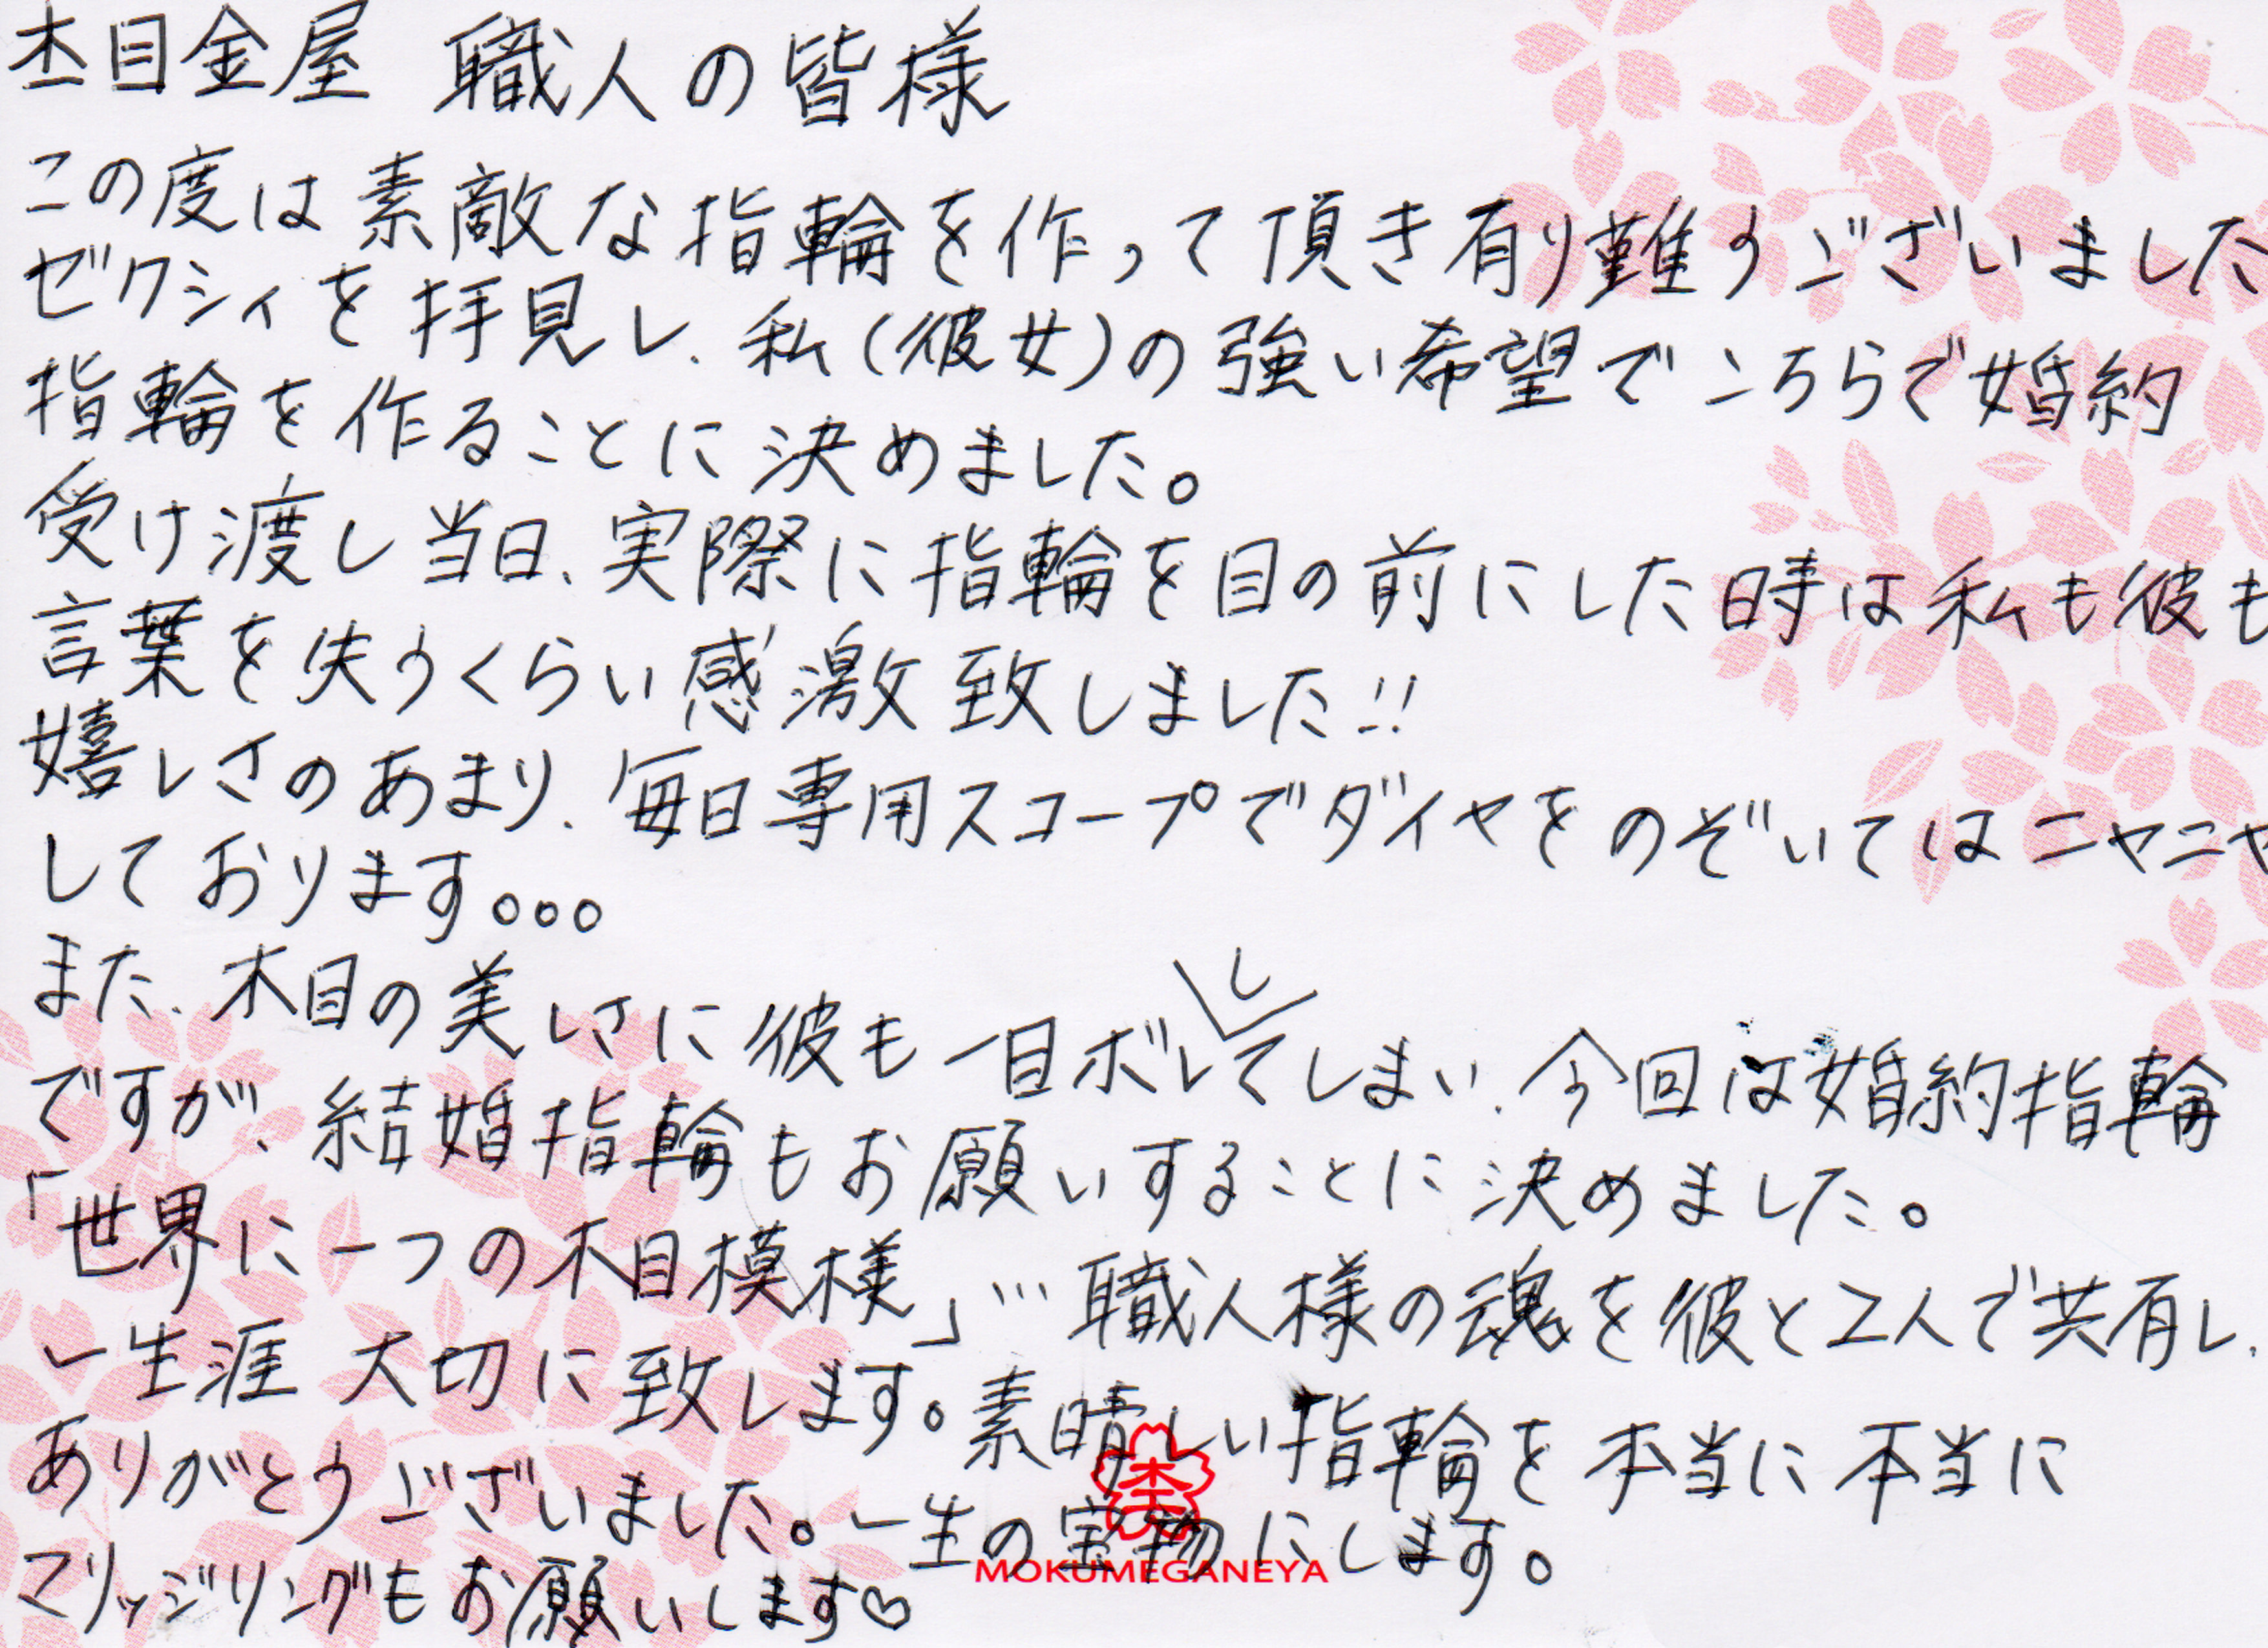 杢目金屋 職人の皆様
この度は素敵な指輪を作って頂き有り難うございました
ゼクシィを拝見し、私(彼女)の強い希望でこちらで婚約
指輪を作ることに決めました。
受け渡し当日、実際に指輪を目の前にした時は私も彼も
言葉を失うくらい感激致しました!!
嬉しさのあまり、毎日専用スコープでダイヤをのぞいてはニヤニヤ
しております。。。
また、木目の美しさに彼も一目ボレしてしまい、今回は婚約指輪
ですが、結婚指輪もお願いすることに決めました。
「世界に一つの木目模様」…職人様の魂を彼と2人で共有し、
一生涯 大切に致します。素晴しい指輪を本当に本当に
ありがとうございました。一生の宝物にします。
マリッジリングもお願いします♡
杢
MOKUMEGANEYA